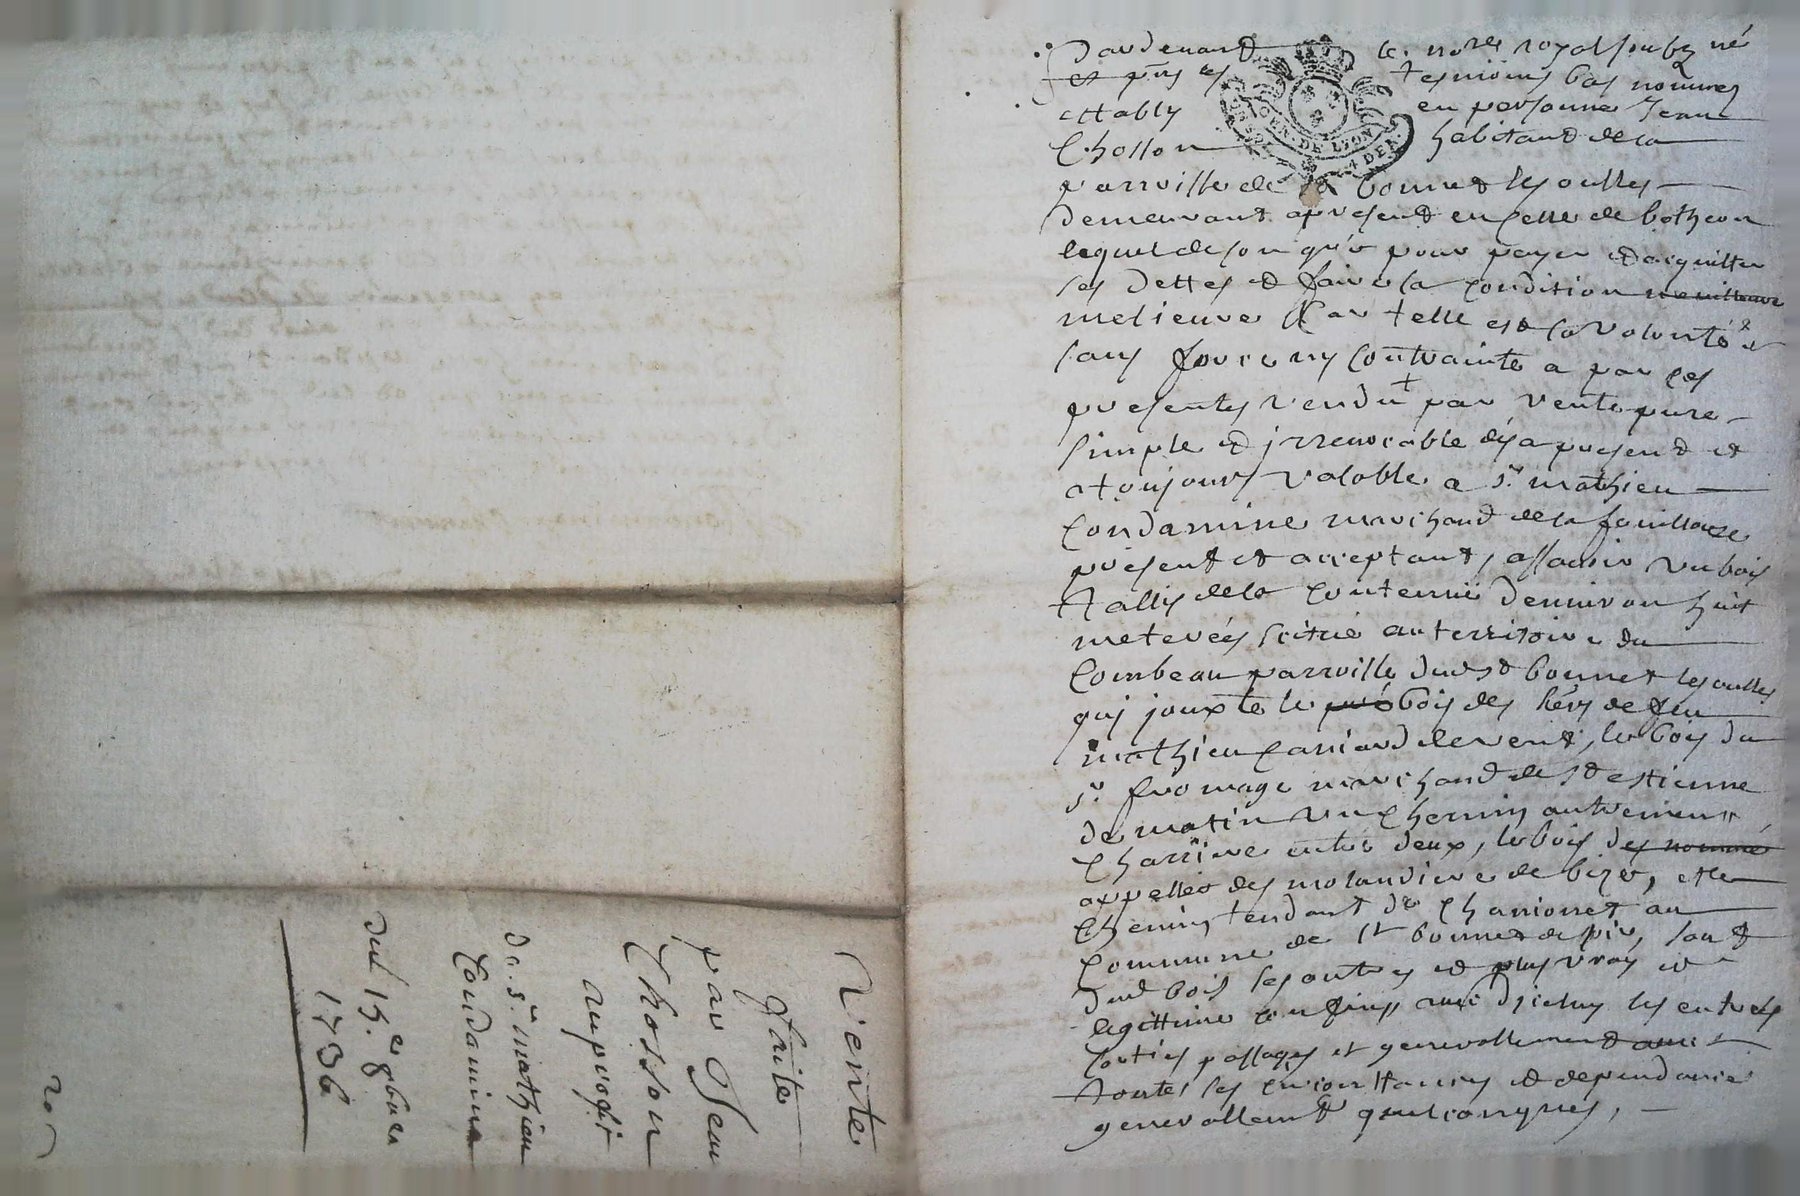 Vente
faite
par Jean
Chosson
au profit
de sr. mathieu
Condamine
du 15.e 8bre
1736
Pardevant le. nore royal soubzné
et pñs les tesmoins bas nommez
estably en personne Jean
Chosson habitant de la
parroisse de st bonnet les oulles
demeurant apresent en celle de botheon
lequel de son gré pour payer et acquitter
ses dettes et faire sa condition
melieure Car telle est sa volonté
sans force ny contrainte a par ces
presentes vendu par vente pure
simple et irrevocable dés apresent et
a toujours valable a sr. mathieu
Condamine marchand de la fouillouze
present et acceptant, assavoir un bois
tallis de la contenue d'environ huit
meterées scitué au territoire du
Combeau parroisse dud st bonnet les oulles
qui jouxte le pré bois des hers de feu
mathieu de vent, le bois du
sr. fromage marchand de st estienne
de matin un chemin autrement
charriere entre deux, le bois des nommé
appellés des molandiere de bize, et le
chemin tendant de chanionet au
commune de st bonnet de pire, sauf
dud bois ses autres et plus vrays et
legittime confins avec les entrées
sorties passages et generallement
toutes ses circonstances et dependances
generallement quelconques,
GEN. DE LYON
4 DEN.